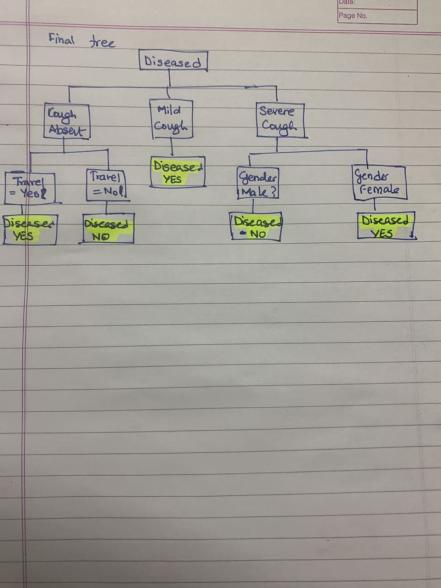 Data:
Page No.
Final tree
Diseased
Cough
Absent
Mild
Cough
Severe
Cough
Travel
= Yes?
Travel
= No?
Diseased
YES
Gender
Male?
Gender
Female
Diseased
YES
Diseased
NO
Diseased
NO
Diseased
YES